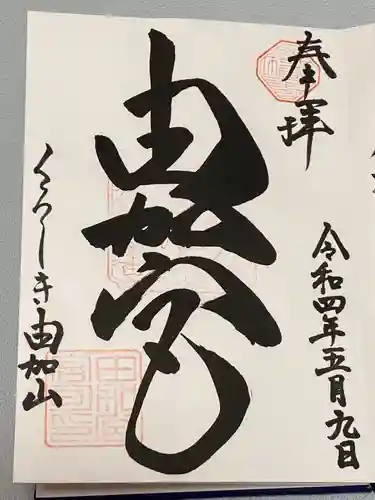 奉拝
由加宮
令和四年五月九日
くらしき由加山